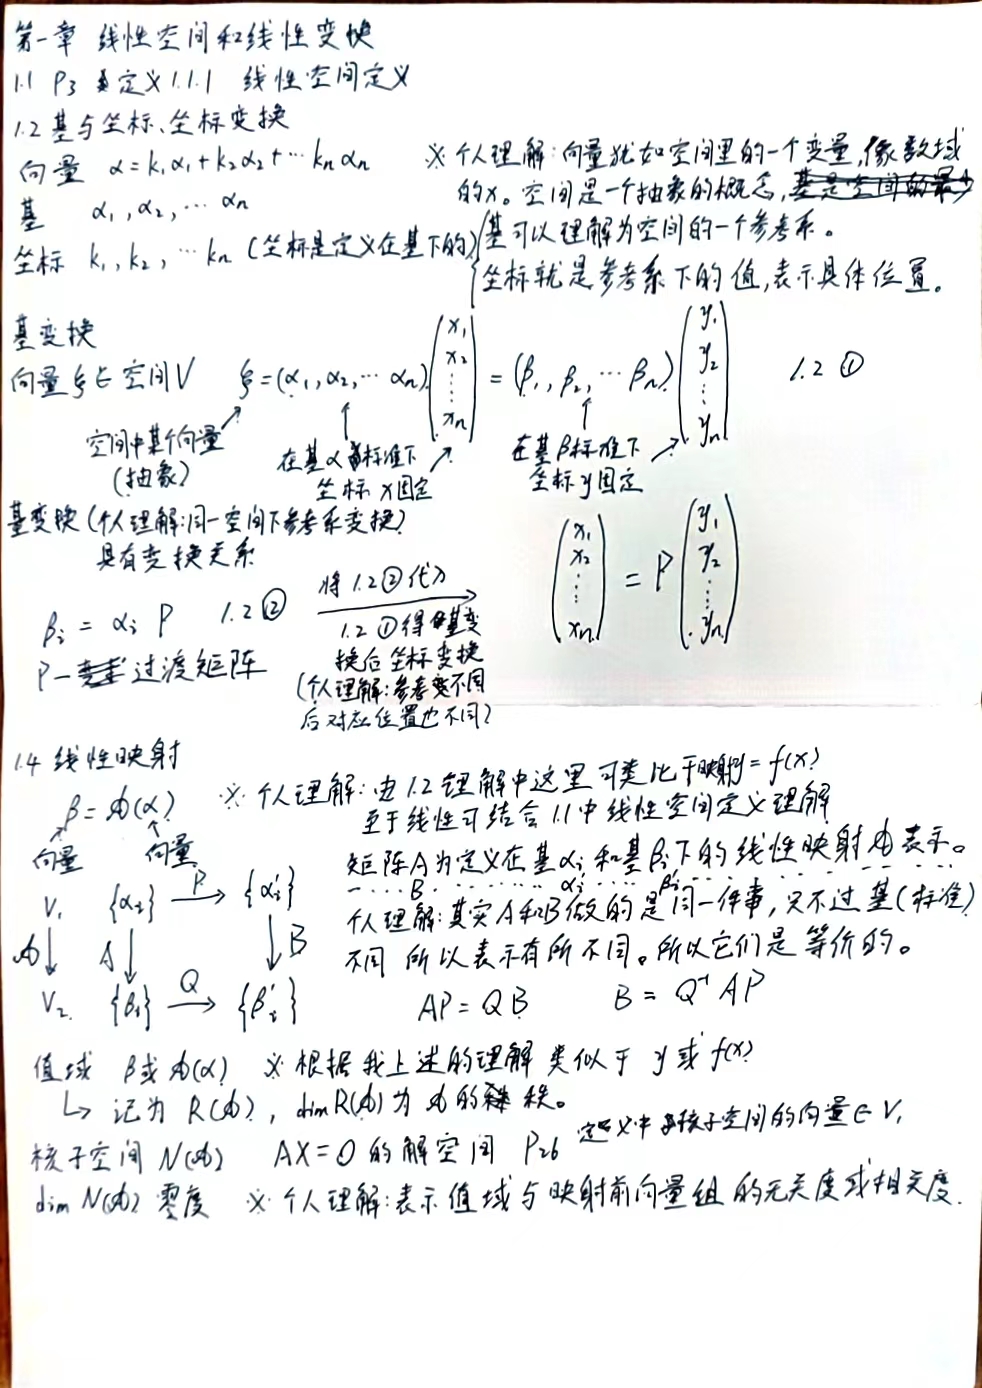 第一章 线性空间和线性变换
1.1 P3 定义1.1.1 线性空间定义
1.2 基与坐标、坐标变换
向量 α=k₁α₁+k₂α₂+…knαn
※个人理解:向量犹如空间里的一个变量,像数域
的x。空间是一个抽象的概念,
基 α₁,α₂,…αn
基可以理解为空间的一个参考系。
坐标 k₁,k₂,…kn (坐标是定义在基下的)
坐标就是参考系下的值,表示具体位置。
基变换
向量ξ∈空间V ξ=(α₁,α₂,…αn)(x₁ x₂ ⋮ xn)=(β₁,β₂,…βn)(y₁ y₂ ⋮ yn) 1.2①
空间中某个向量
(抽象)
在基α标准下
坐标x固定
在基β标准下
坐标y固定
基变换(个人理解:同一空间下参考系变换)
具有变换关系
βi = αi P 1.2②
将1.2②代入
1.2①得基变
换后坐标变换
(个人理解:参考变不同
后对应位置也不同)
(x₁ x₂ ⋮ xn) = P (y₁ y₂ ⋮ yn)
P— 过渡矩阵
1.4 线性映射
β=𝒜(α)
向量 向量
※个人理解:由1.2理解中这里可类比于映射y=f(x)
至于线性可结合1.1中线性空间定义理解
矩阵A为定义在基αi和基βi下的线性映射𝒜表示。
……B………αi′……βi′………
个人理解:其实A和B做的是同一件事,只不过基(标准)
不同 所以表示有所不同。所以它们是等价的。
V₁ {αi} P→ {αi′}
𝒜↓ A↓ ↓B
V₂ {βi} Q→ {βi′}
AP=QB B=Q⁻¹AP
值域 β或𝒜(α) ※根据我上述的理解 类似于y或f(x)
↳记为R(𝒜),dimR(𝒜)为𝒜的秩。
核子空间N(𝒜) AX=0的解空间 P26 定义中核子空间的向量∈V₁
dim N(𝒜) 零度 ※个人理解:表示值域与映射前向量组的无关度或相关度.